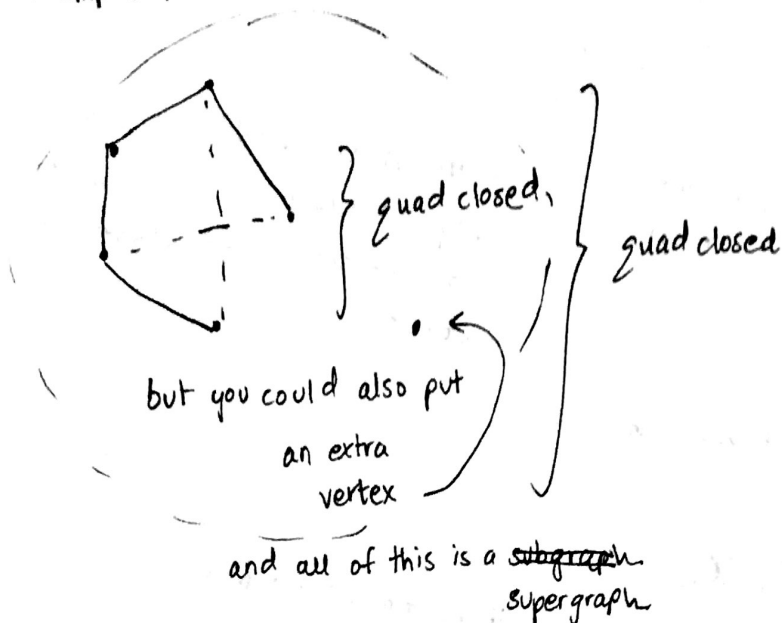 quad closed,
quad closed
but you could also put
an extra
vertex
and all of this is a subgraph
supergraph